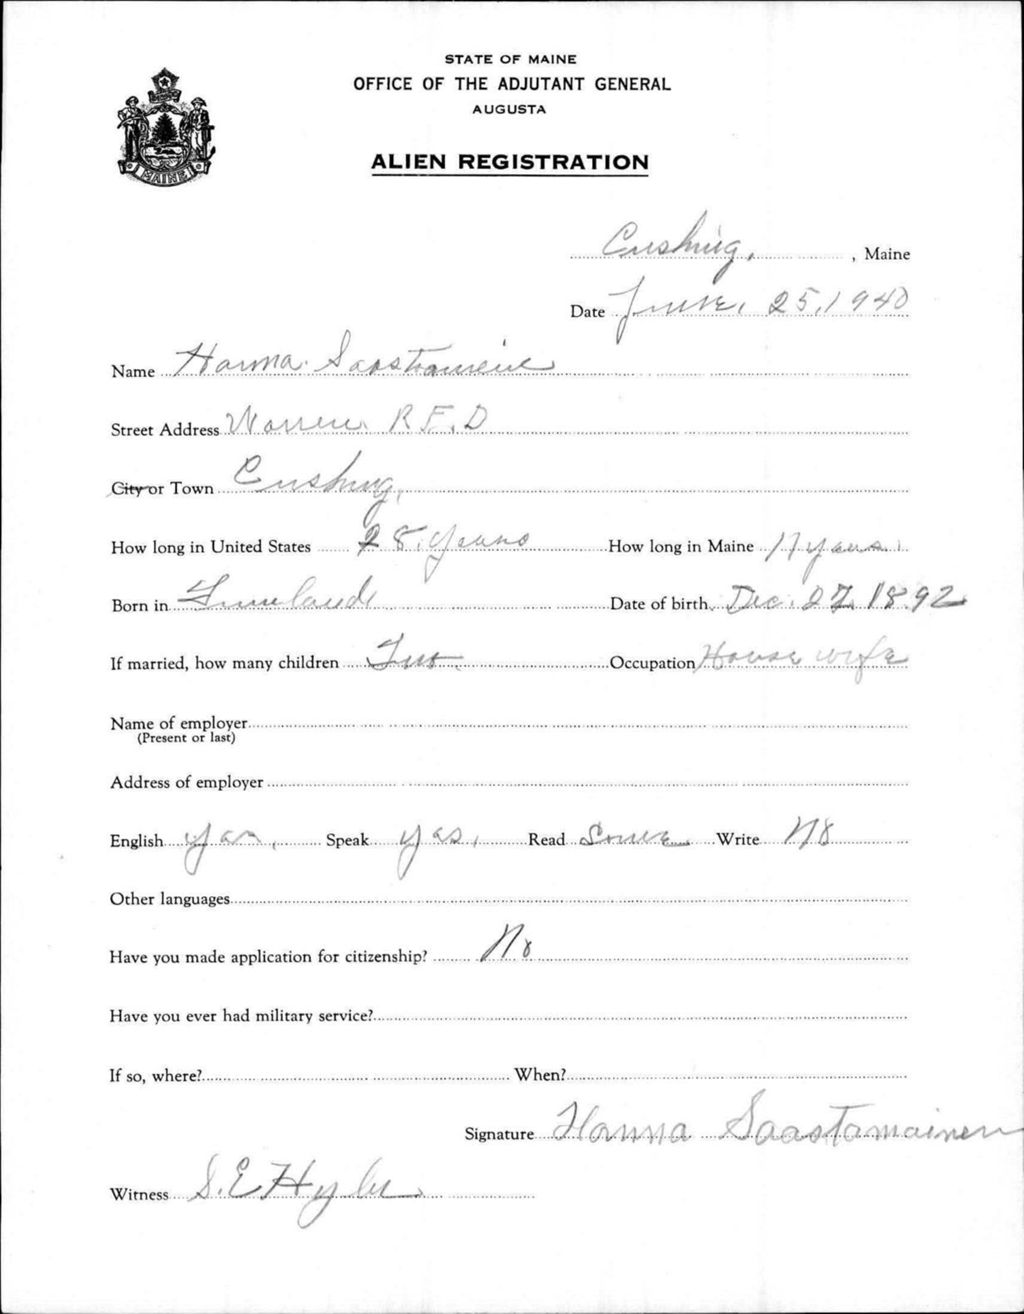 STATE OF MAINE
OFFICE OF THE ADJUTANT GENERAL
AUGUSTA
MAINE
ALIEN REGISTRATION
Cushing, , Maine
Date June, 25, 1940
Name Hanna
Street Address Warren R.F.D
City or Town Cushing,
How long in United States 28 years How long in Maine years.
Born in Date of birth Dec. 27, 1892
If married, how many children Two Occupation House wife
Name of employer
(Present or last)
Address of employer
English yas, Speak yas, Read Some Write No
Other languages
Have you made application for citizenship? No
Have you ever had military service?
If so, where? When?
Signature Hanna Saastamainen
Witness S. E Hyler